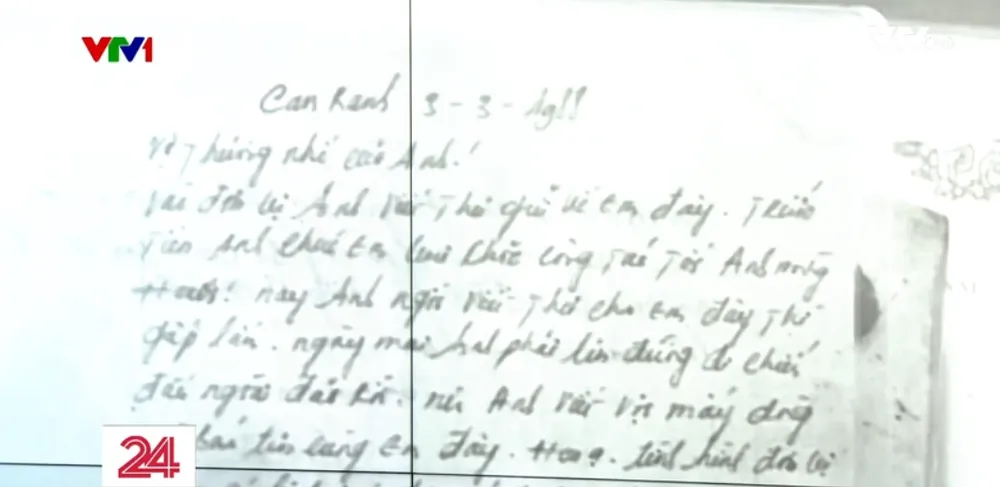 VTV1
Cam Ranh 3-3-1988
Vợ thương nhớ của Anh!
Về đơn vị Anh viết thư gửi về Em đây. Trước
Tiên Anh chúc Em khoẻ công Tác Tốt Anh mừng
Hương! nay Anh ngồi viết Thư cho Em đây Thì
gấp lắm. ngày mai Anh phải lên đường đi chiến
đấu ngoài đảo rồi. nên Anh viết vội mấy dòng
báo tin cùng Em đây. tình hình đơn vị
24